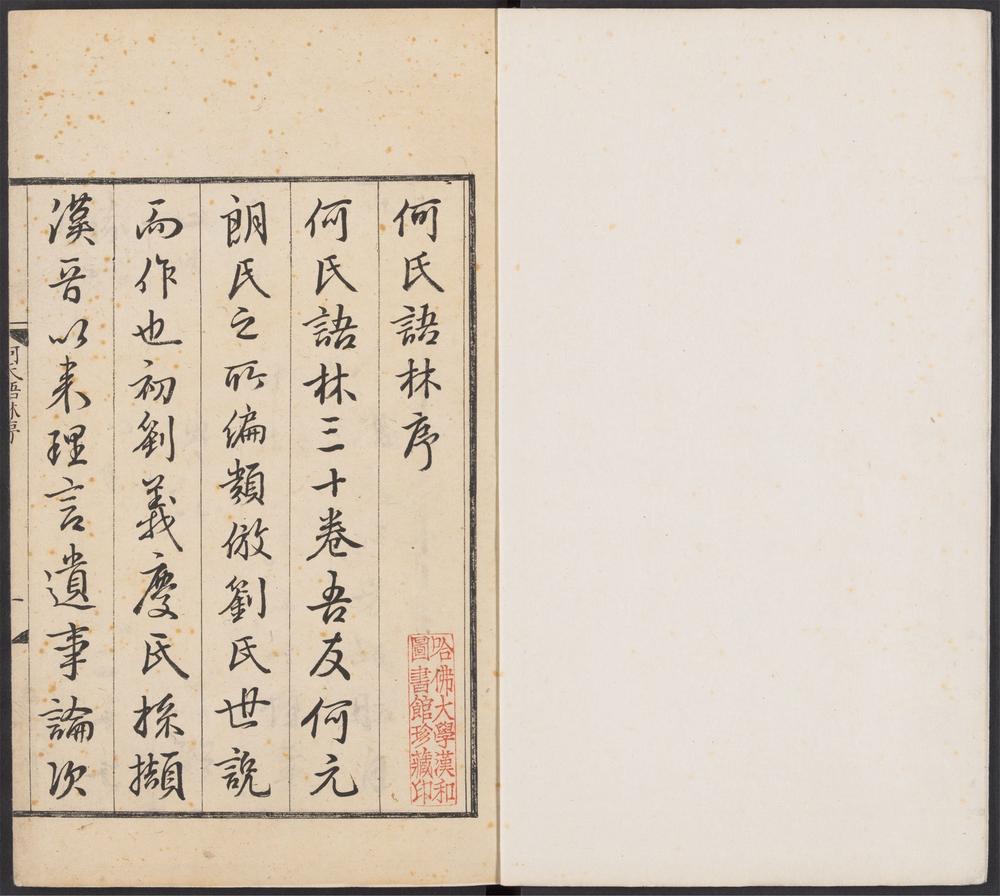 何氏語林序
何氏語林三十卷吾友何元
朗氏之所編類倣劉氏世說
而作也初劉義慶氏採擷
漢晉以来理言遺事論次
哈佛大學漢和
圖書館珍藏印
何氏語林序
一